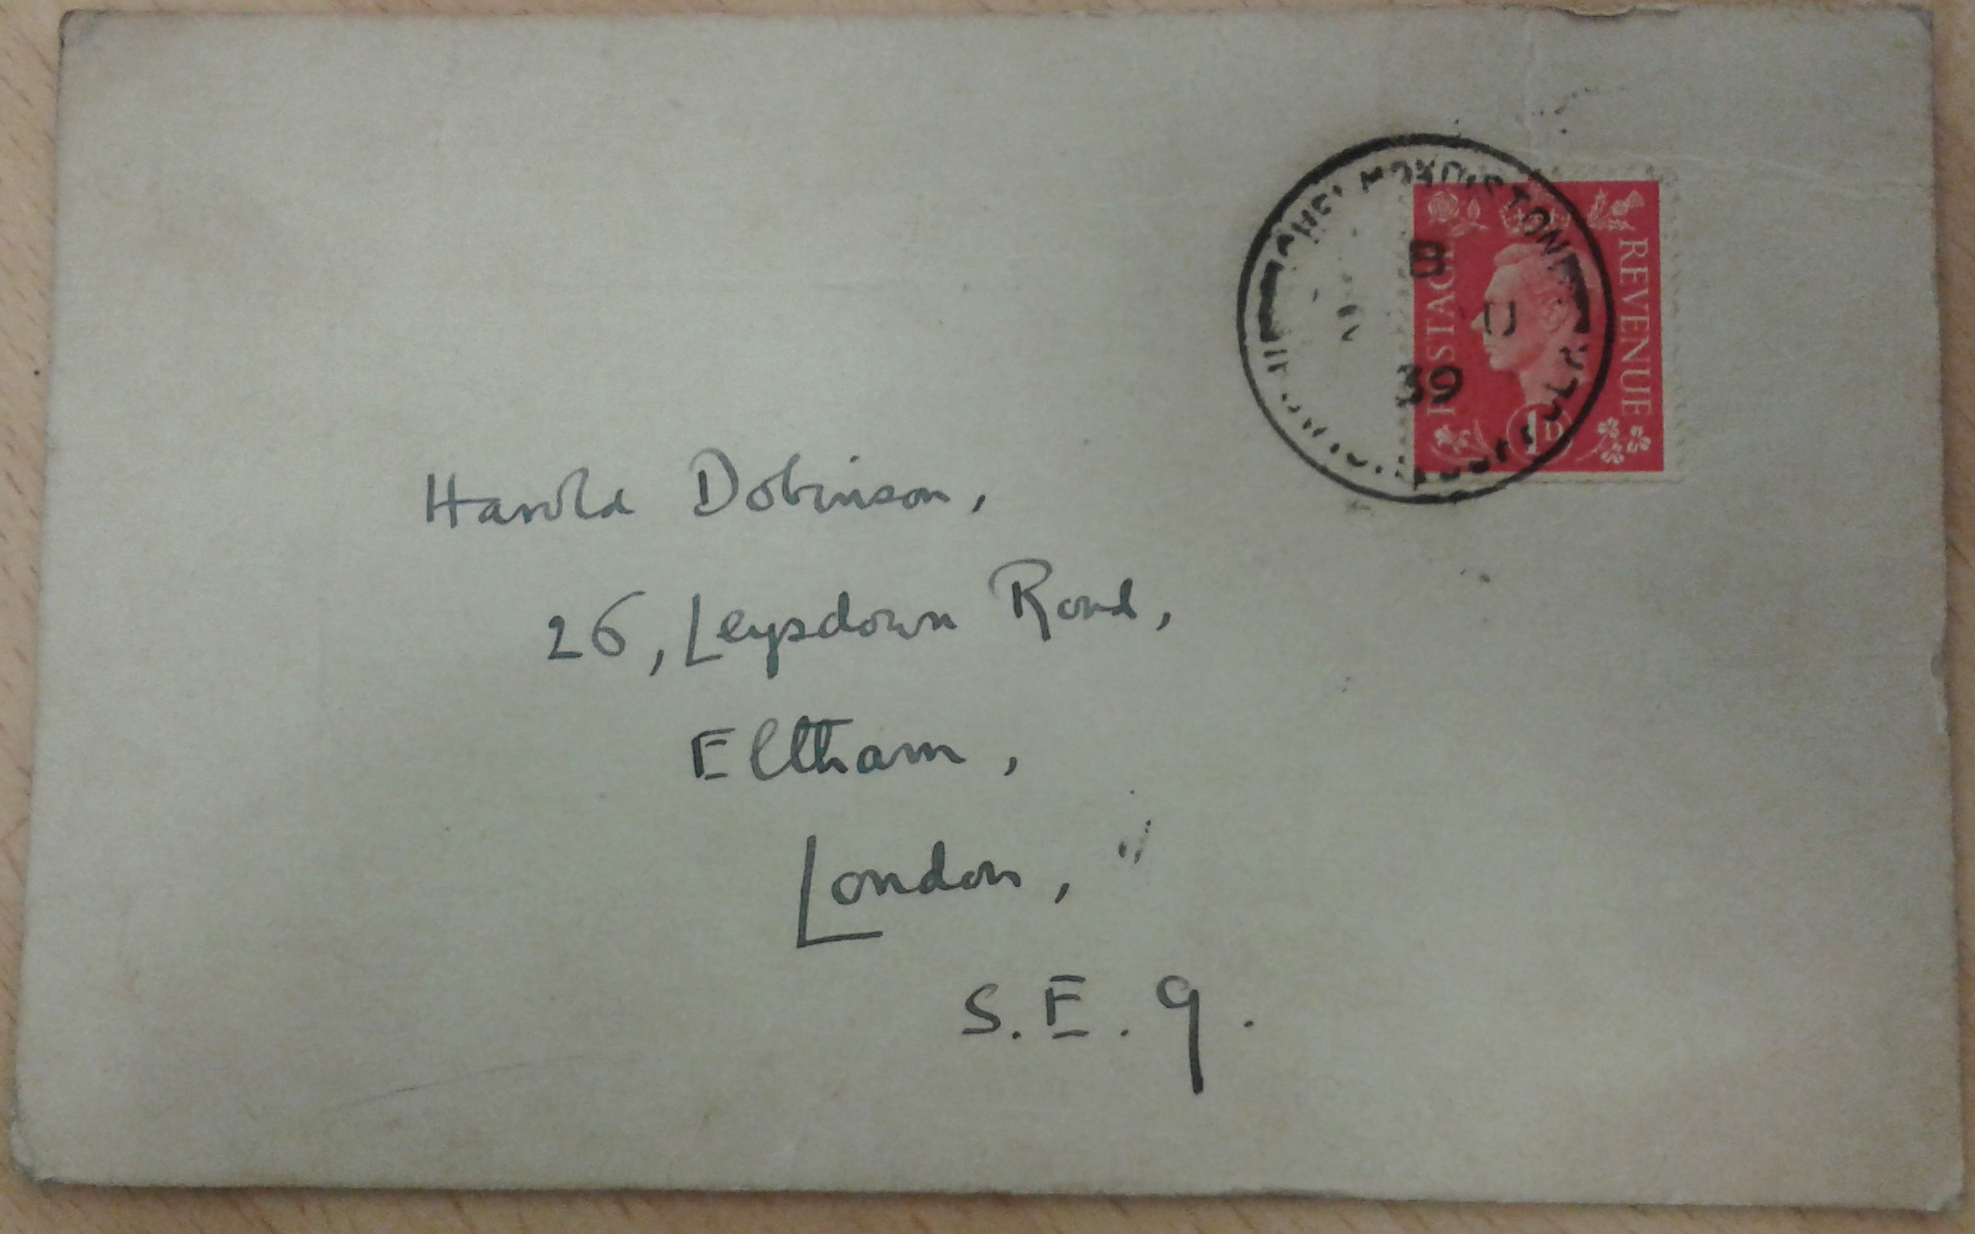 CHELMONDISTON
8
U
39
POSTAGE
REVENUE
1D
Harold Dobinson,
26, Leysdown Road,
Eltham,
London,
S.E.9.